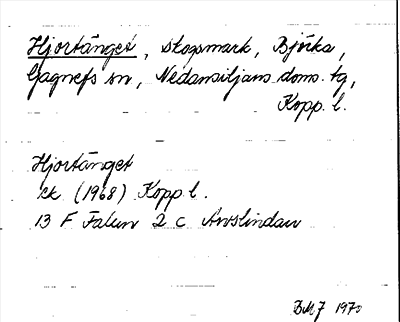 Hjortänget, skogsmark, Björka,
Gagnefs sn, Nedansiljans doms. tg,
Kopp. l.
Hjortänget
ek (1968) Kopp l.
13 F Falun 2 c Arvslindan
BMJ 1970